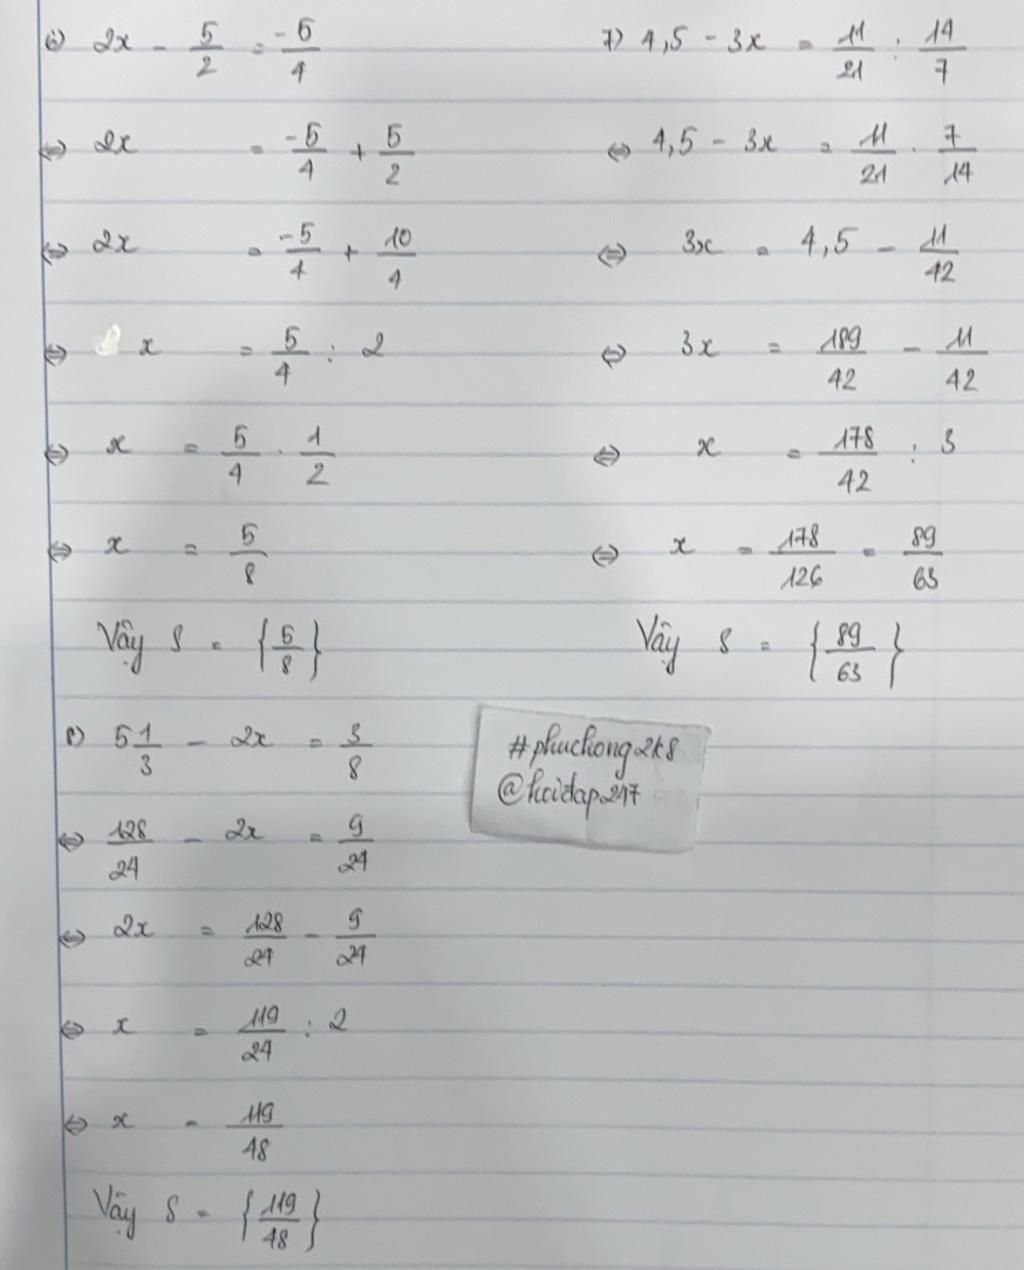 6) 2x - 5/2 = -5/4
⇔ 2x = -5/4 + 5/2
⇔ 2x = -5/4 + 10/4
⇔ x = 5/4 : 2
⇔ x = 5/4 . 1/2
⇔ x = 5/8
Vậy S = {5/8}
7) 4,5 - 3x = 11/21 : 14/7
⇔ 4,5 - 3x = 11/21 . 7/14
⇔ 3x = 4,5 - 11/42
⇔ 3x = 189/42 - 11/42
⇔ x = 178/42 : 3
⇔ x = 178/126 = 89/63
Vậy S = {89/63}
8) 5 1/3 - 2x = 3/8
⇔ 128/24 - 2x = 9/24
⇔ 2x = 128/24 - 9/24
⇔ x = 119/24 : 2
⇔ x = 119/48
Vậy S = {119/48}
#phuchong2k8
@hoidap247